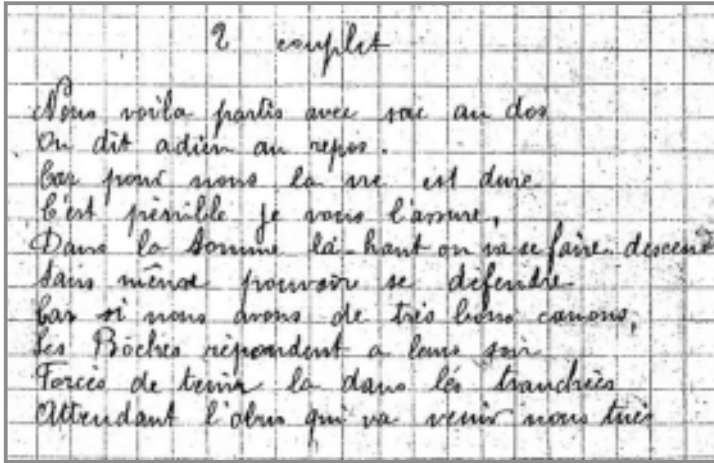 2 couplet
Nous voila partis avec sac au dos
On dit adieu au repos.
Car pour nous la vie est dure
C'est pénible je vous l'assure,
Dans la Somme là-haut on va se faire descend
Sans même pouvoir se défendre
Car si nous avons de très bons canons,
Les Boches répondent a leurs son
Forcés de tenir la dans les tranchées
Attendant l'obus qui va venir nous tuer